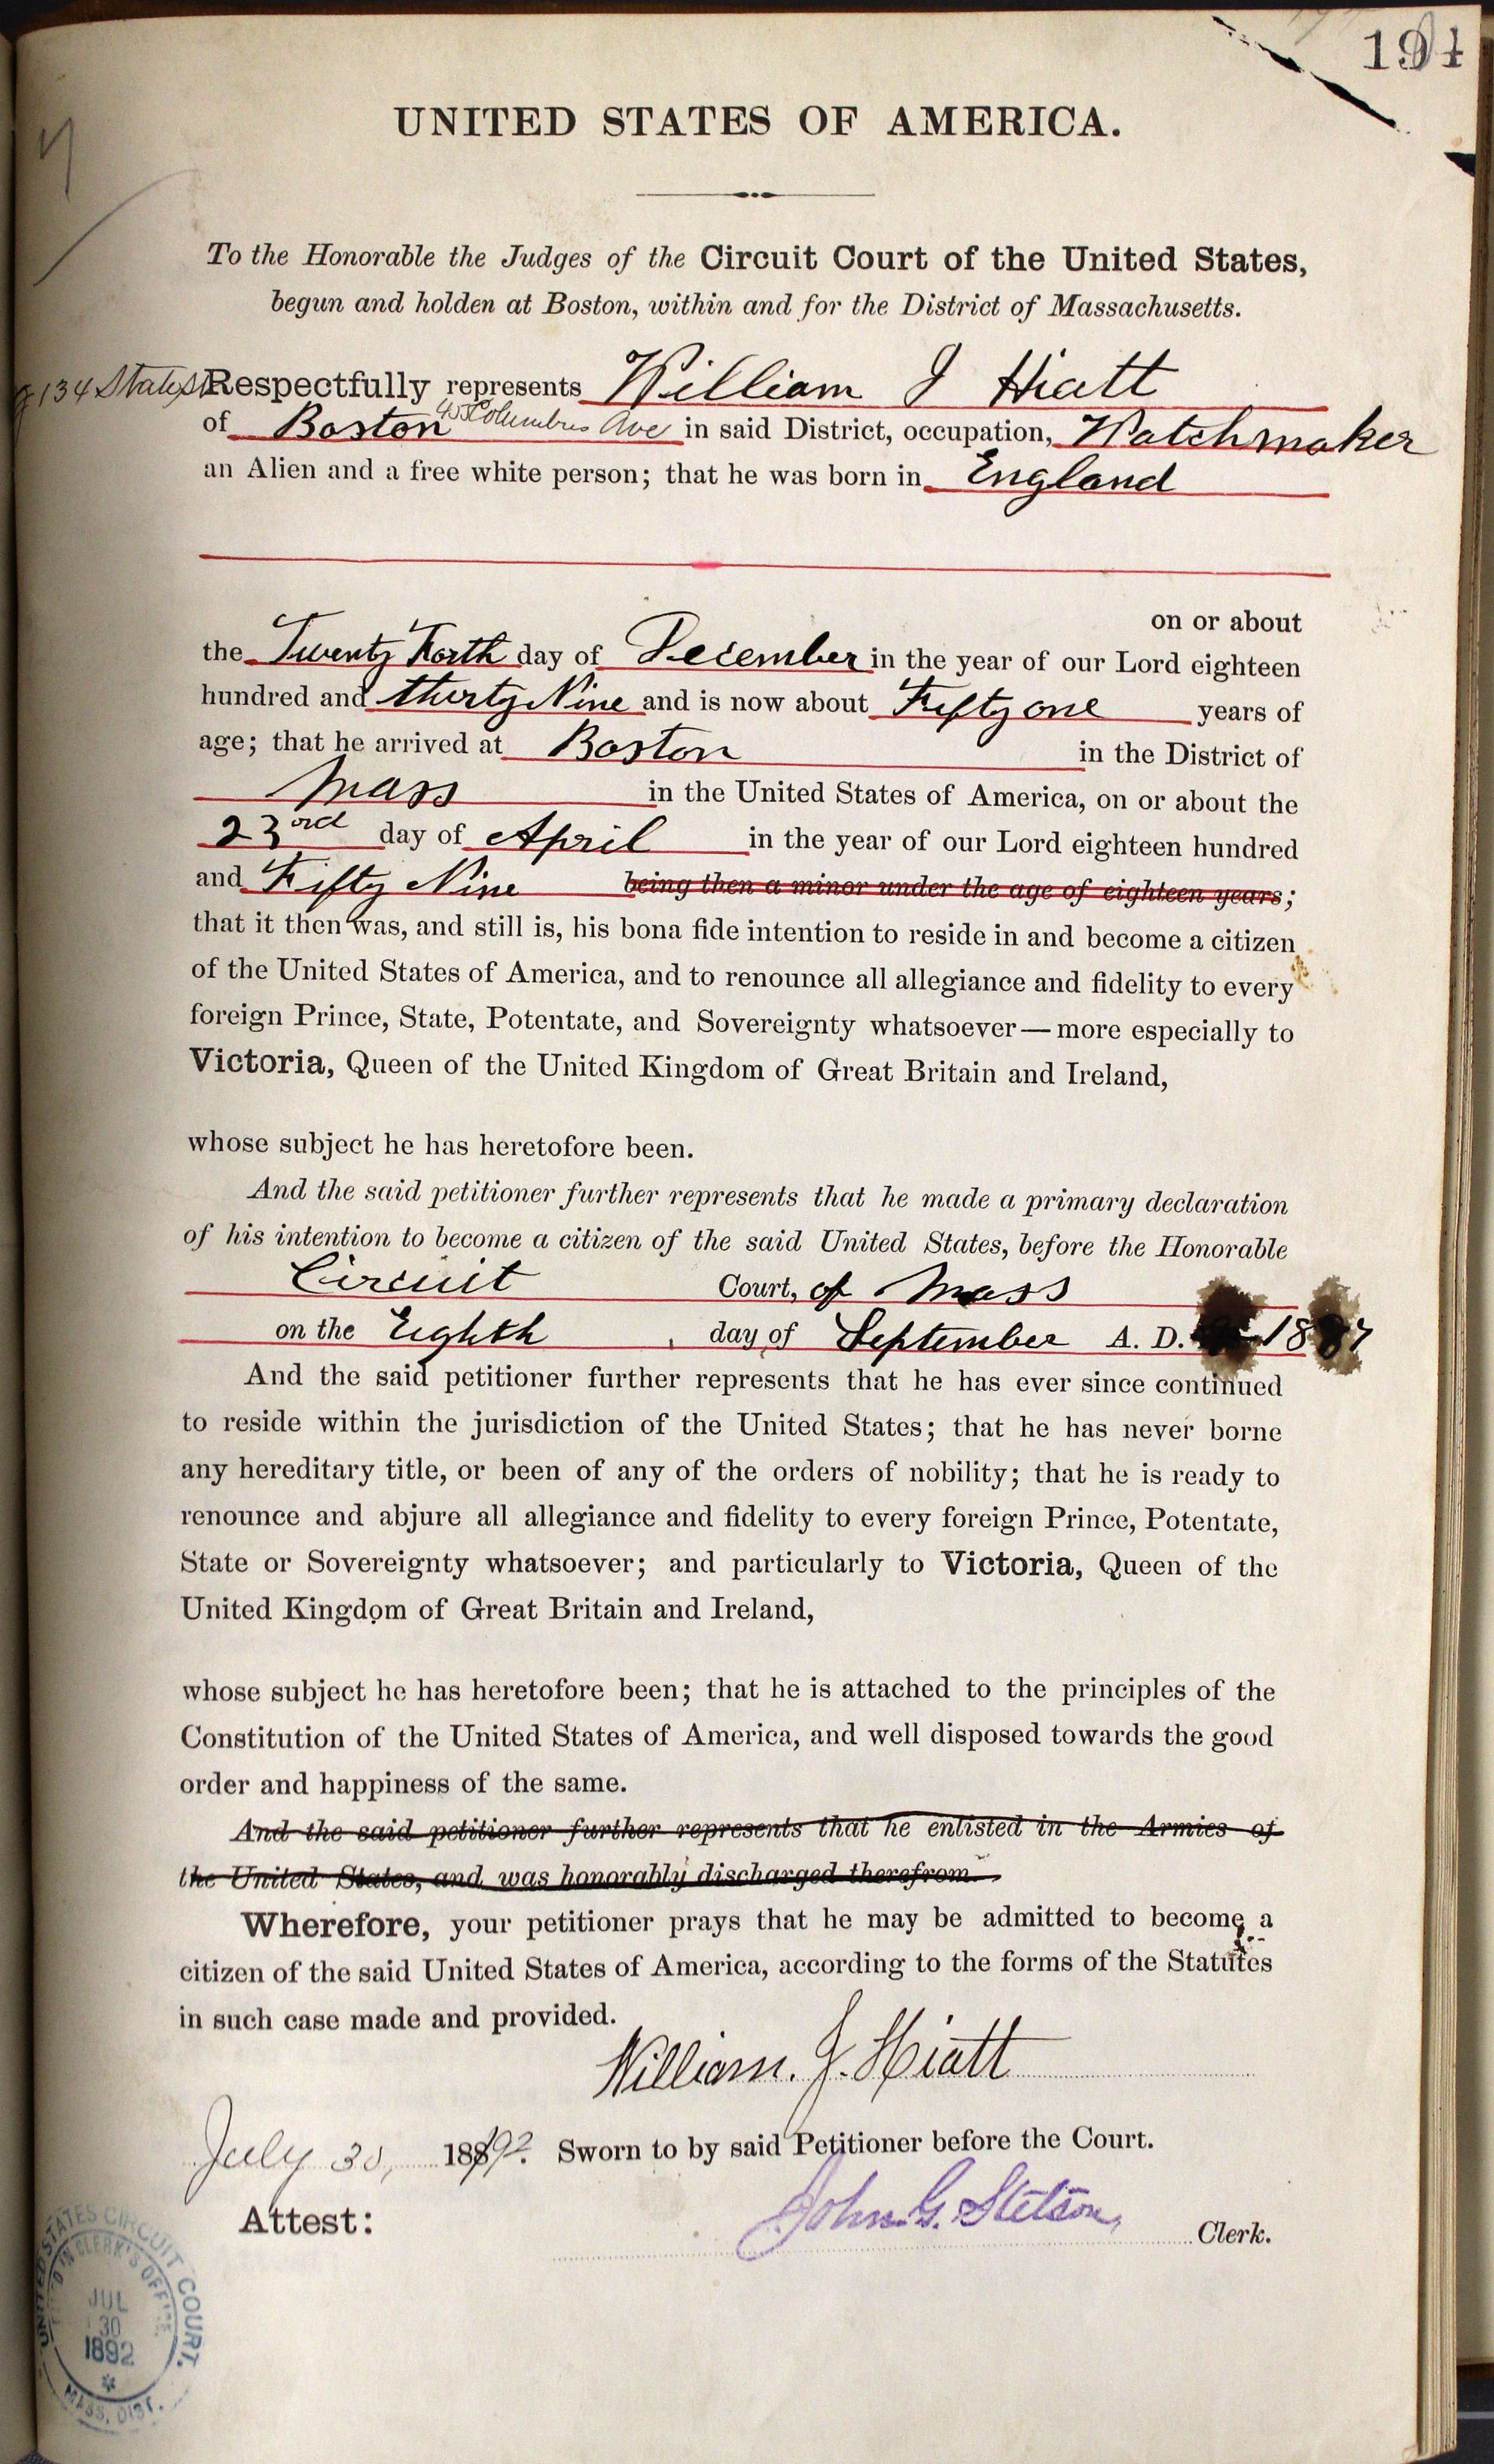 UNITED STATES OF AMERICA.
To the Honorable the Judges of the Circuit Court of the United States,
begun and holden at Boston, within and for the District of Massachusetts.
134 State St Respectfully represents William J Hiatt
of Boston Columbus Ave in said District, occupation, Watchmaker
an Alien and a free white person; that he was born in England
on or about
the Twenty Forth day of December in the year of our Lord eighteen
hundred and thirty Nine and is now about Fifty one years of
age; that he arrived at Boston in the District of
Mass in the United States of America, on or about the
23rd day of April in the year of our Lord eighteen hundred
and Fifty Nine being then a minor under the age of eighteen years;
that it then was, and still is, his bona fide intention to reside in and become a citizen
of the United States of America, and to renounce all allegiance and fidelity to every
foreign Prince, State, Potentate, and Sovereignty whatsoever — more especially to
Victoria, Queen of the United Kingdom of Great Britain and Ireland,
whose subject he has heretofore been.
And the said petitioner further represents that he made a primary declaration
of his intention to become a citizen of the said United States, before the Honorable
Circuit Court, of Mass
on the Eighth day of September A. D. 1887
And the said petitioner further represents that he has ever since continued
to reside within the jurisdiction of the United States; that he has never borne
any hereditary title, or been of any of the orders of nobility; that he is ready to
renounce and abjure all allegiance and fidelity to every foreign Prince, Potentate,
State or Sovereignty whatsoever; and particularly to Victoria, Queen of the
United Kingdom of Great Britain and Ireland,
whose subject he has heretofore been; that he is attached to the principles of the
Constitution of the United States of America, and well disposed towards the good
order and happiness of the same.
And the said petitioner further represents that he enlisted in the Armies of
the United States, and was honorably discharged therefrom.
Wherefore, your petitioner prays that he may be admitted to become a
citizen of the said United States of America, according to the forms of the Statutes
in such case made and provided.
William. J. Hiatt
July 30, 1892. Sworn to by said Petitioner before the Court.
Attest: John G. Stetson, Clerk.
UNITED STATES CIRCUIT COURT.
FILED IN CLERK'S OFFICE
JUL
30
1892
MASS. DIST.